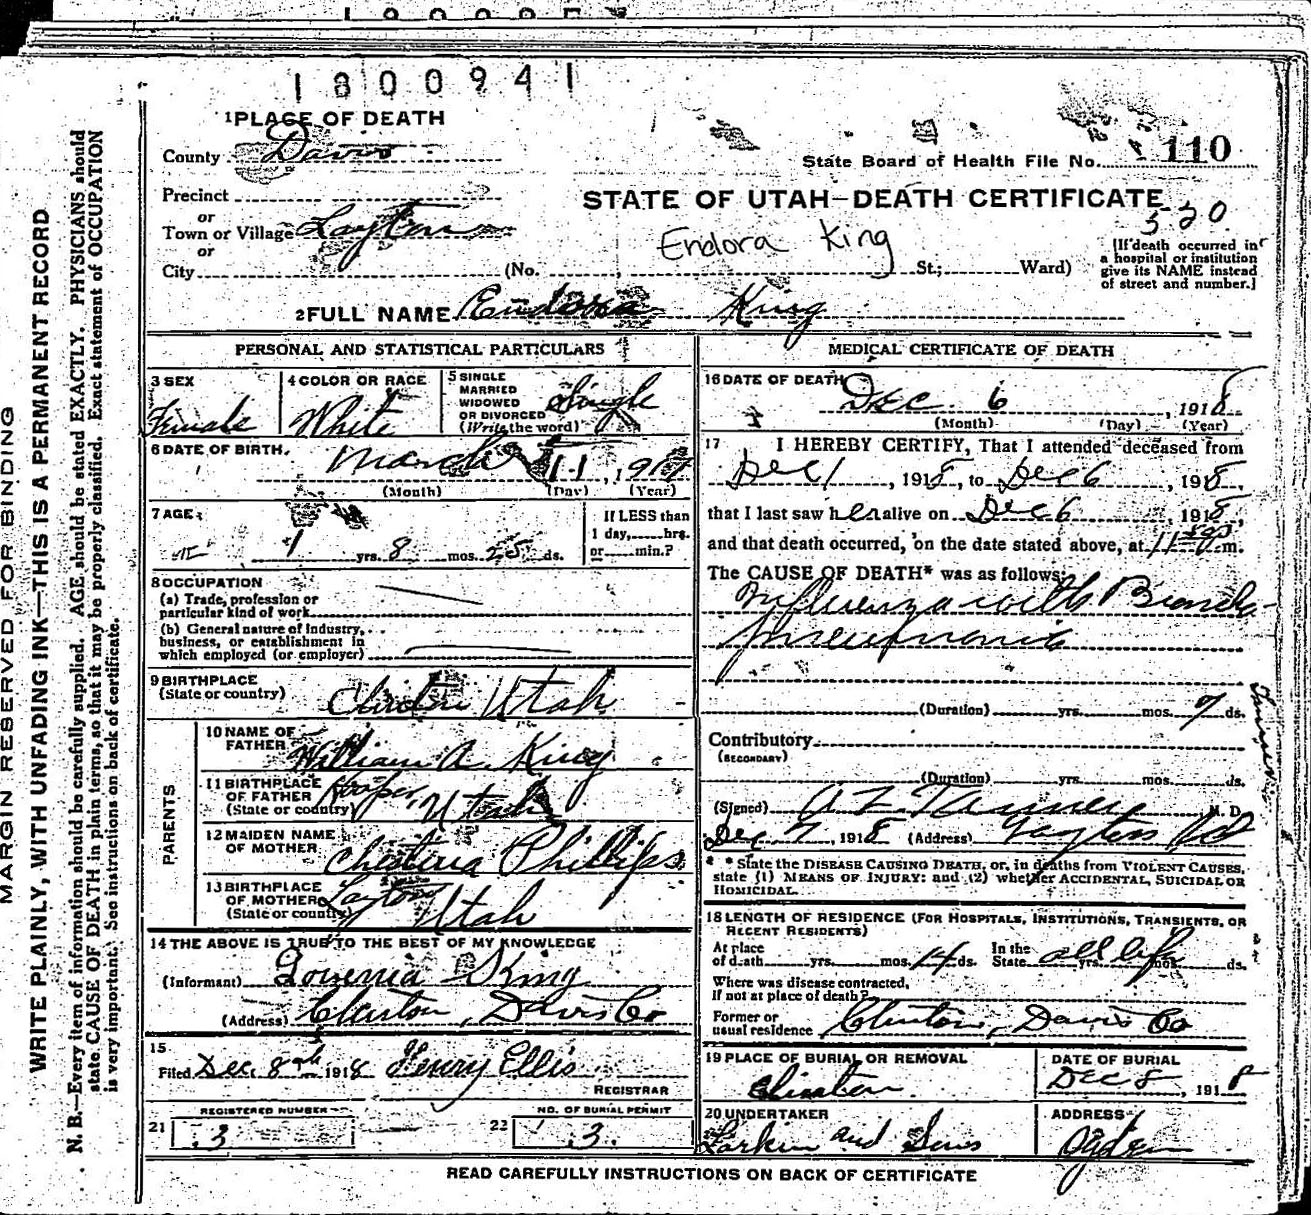 1800941
1 PLACE OF DEATH
County Davis
State Board of Health File No. 110
Precinct
STATE OF UTAH—DEATH CERTIFICATE
520
or
Town or Village Layton
Endora King
or
City (No. , St.; Ward)
[If death occurred in
a hospital or institution
give its NAME instead
of street and number.]
2 FULL NAME Endora King
PERSONAL AND STATISTICAL PARTICULARS
3 SEX
Female
4 COLOR OR RACE
White
5 SINGLE
MARRIED
WIDOWED
OR DIVORCED
(Write the word)
Single
6 DATE OF BIRTH.
March 11, 1917
(Month) (Day) (Year)
7 AGE
1 yrs. 8 mos. 25 ds.
If LESS than
1 day, hrs.
or min.?
8 OCCUPATION
(a) Trade, profession or
particular kind of work
(b) General nature of Industry,
business, or establishment in
which employed (or employer)
9 BIRTHPLACE
(State or country)
Clinton Utah
PARENTS
10 NAME OF
FATHER
William A. King
11 BIRTHPLACE
OF FATHER
(State or country)
Hooper, Utah
12 MAIDEN NAME
OF MOTHER
Phillips
13 BIRTHPLACE
OF MOTHER
(State or country)
Layton Utah
14 THE ABOVE IS TRUE TO THE BEST OF MY KNOWLEDGE
(Informant) King
(Address) Clinton, Davis Co
15
Filed Dec. 8th 1918 Henry Ellis
REGISTRAR
REGISTERED NUMBER
21 3
NO. OF BURIAL PERMIT
22 3
MEDICAL CERTIFICATE OF DEATH
16 DATE OF DEATH
Dec. 6, 1918
(Month) (Day) (Year)
17 I HEREBY CERTIFY, That I attended deceased from
Dec 1, 1918, to Dec 6, 1918,
that I last saw her alive on Dec 6 1918,
and that death occurred, on the date stated above, at 11 m.
The CAUSE OF DEATH* was as follows:
Influenza with Broncho-
pneumonia
(Duration) yrs. mos. 7 ds.
Contributory
(SECONDARY)
(Duration) yrs. mos. ds.
(Signed) A Z Tanner M. D.
Dec 7, 1918 (Address) Layton Ut
* State the DISEASE CAUSING DEATH, or, in deaths from VIOLENT CAUSES,
state (1) MEANS OF INJURY: and (2) whether ACCIDENTAL, SUICIDAL OR
HOMICIDAL.
18 LENGTH OF RESIDENCE (FOR HOSPITALS, INSTITUTIONS, TRANSIENTS, OR
RECENT RESIDENTS)
At place
of death yrs. mos. 14 ds.
In the
State all life yrs. mos. ds.
Where was disease contracted,
If not at place of death?
Former or
usual residence Clinton, Davis Co
19 PLACE OF BURIAL OR REMOVAL
Clinton
DATE OF BURIAL
Dec 8, 1918
20 UNDERTAKER
Larkin and Sons
ADDRESS
Ogden
READ CAREFULLY INSTRUCTIONS ON BACK OF CERTIFICATE
MARGIN RESERVED FOR BINDING
WRITE PLAINLY, WITH UNFADING INK—THIS IS A PERMANENT RECORD
N. B.—Every item of information should be carefully supplied. AGE should be stated EXACTLY. PHYSICIANS should
state CAUSE OF DEATH in plain terms, so that it may be properly classified. Exact statement of OCCUPATION
is very important. See instructions on back of certificate.